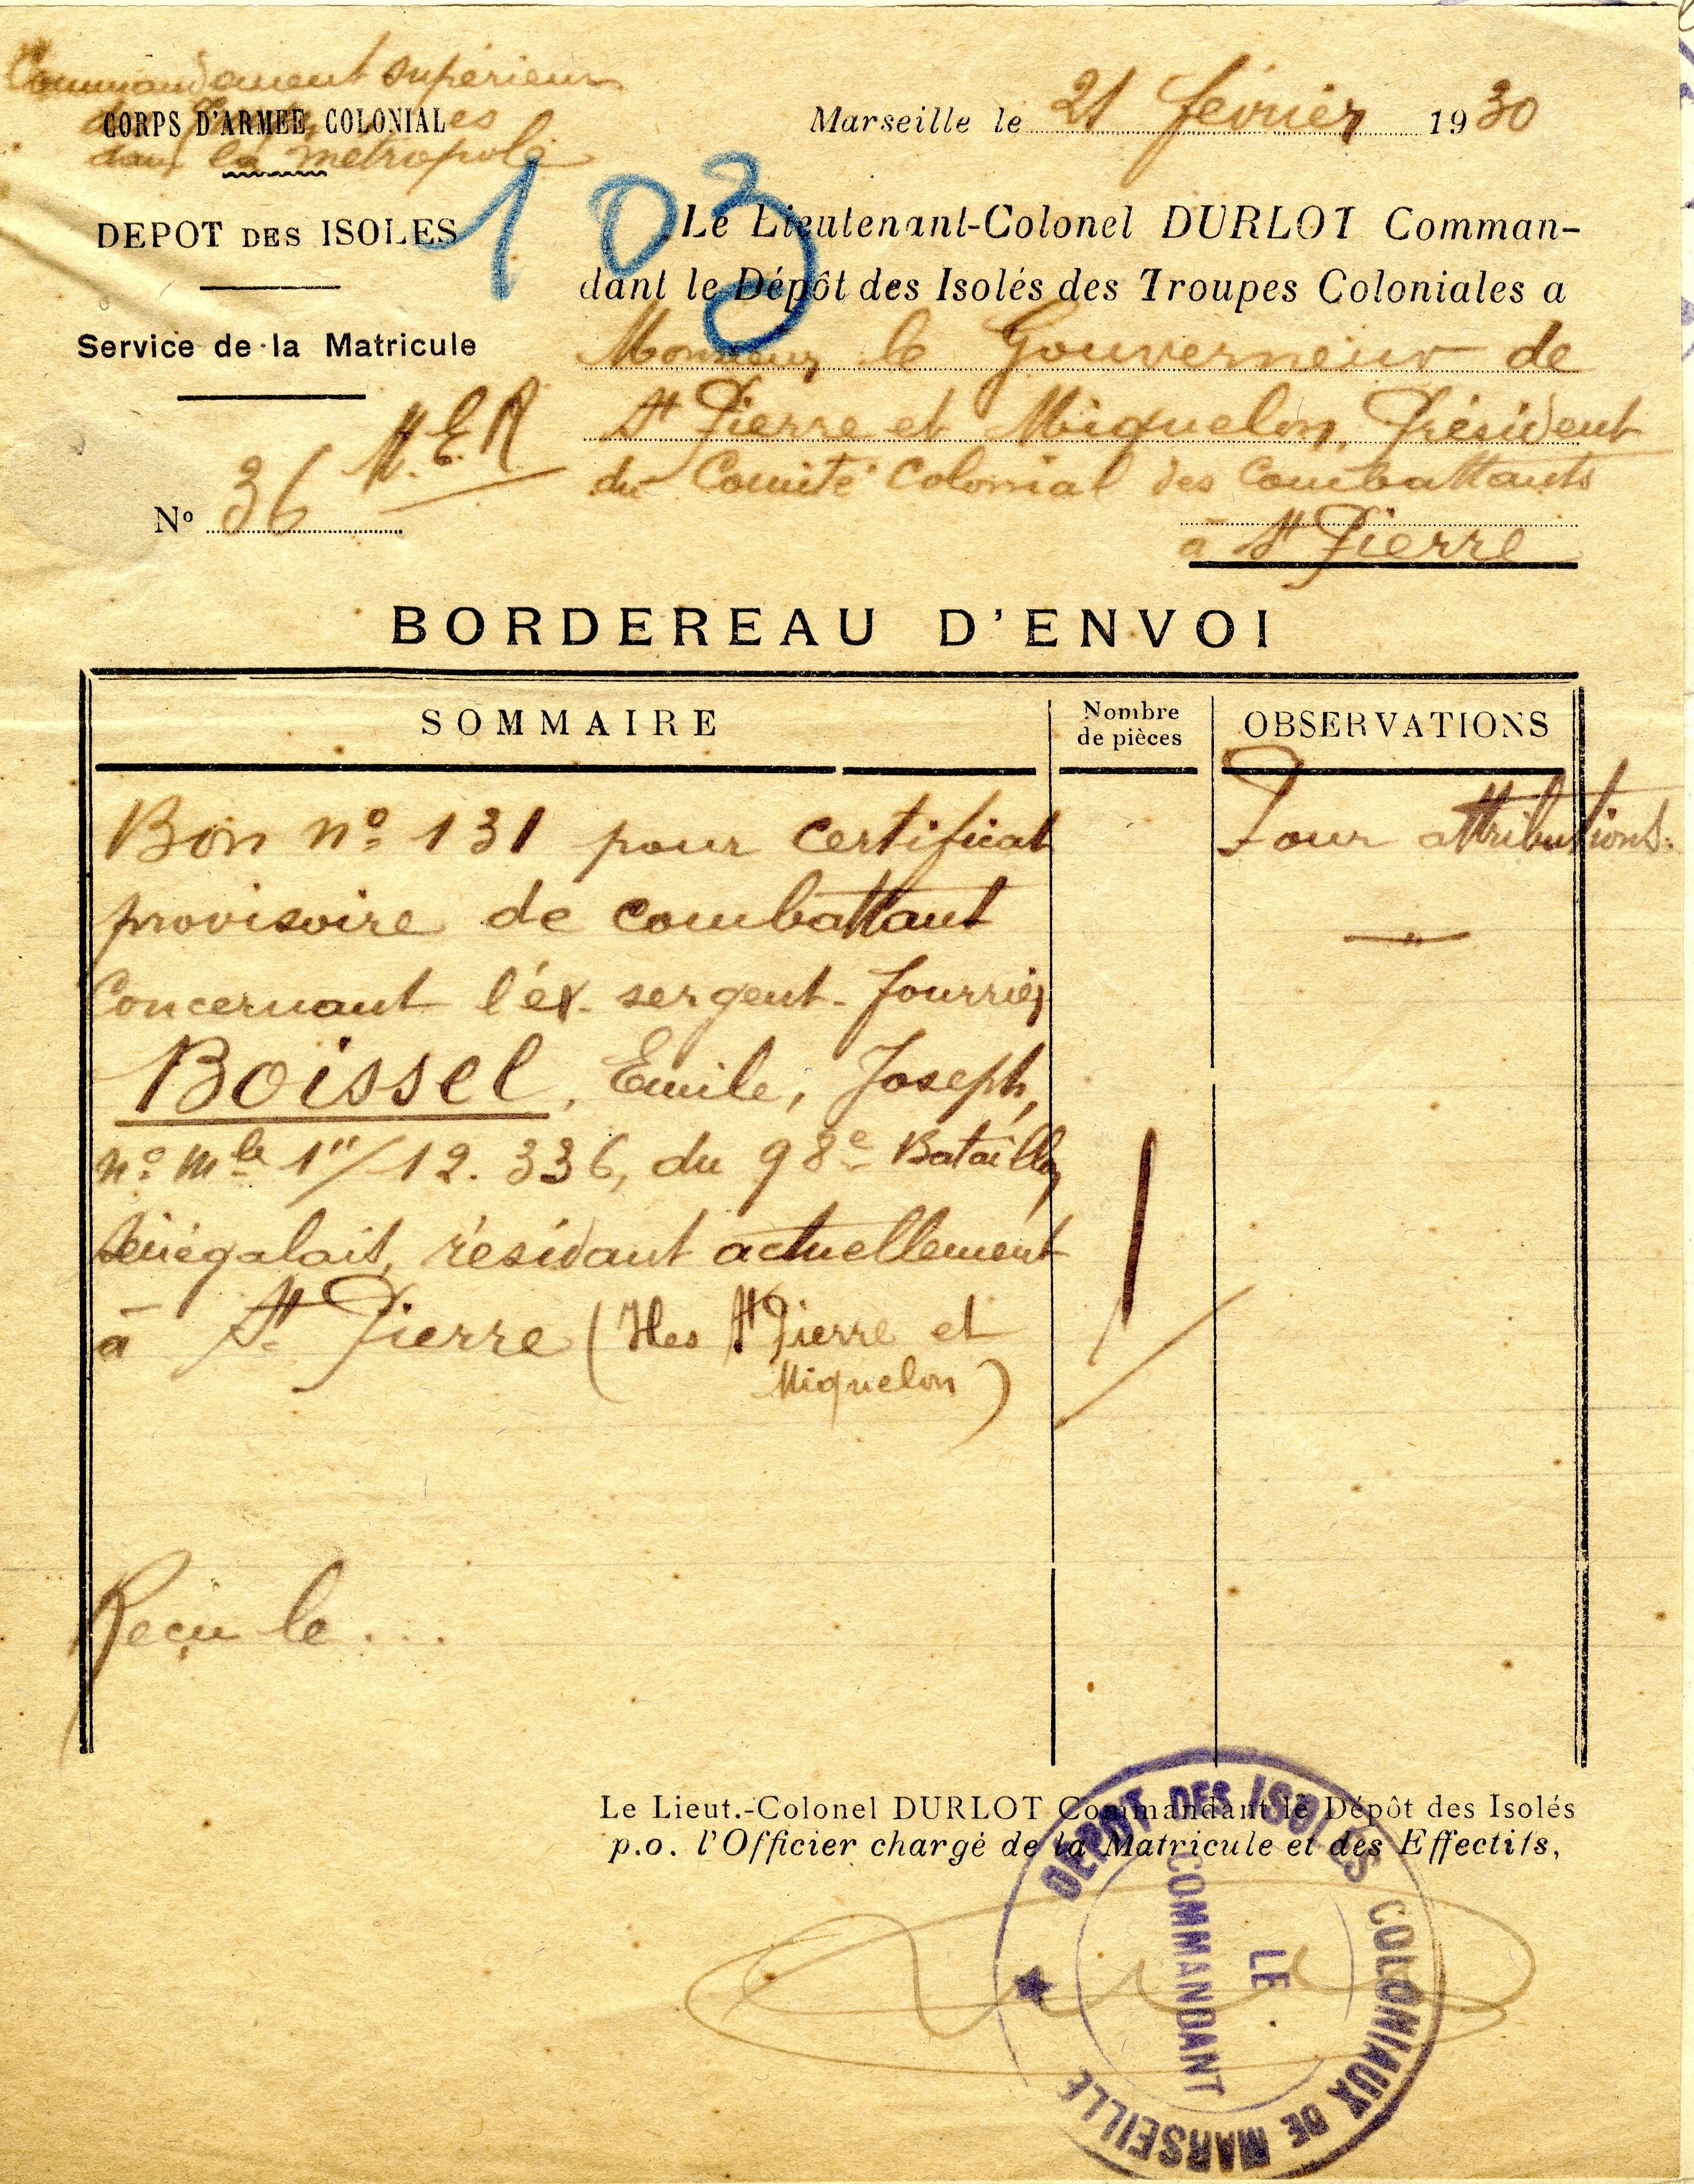 Commandement supérieur
CORPS D'ARMÉE COLONIAL
dans la métropole
DEPOT DES ISOLES
Service de la Matricule
M.E.R
Nº 36
Marseille le 21 février 1930
103
Le Lieutenant-Colonel DURLOT Comman-
dant le Dépôt des Isolés des Troupes Coloniales a
Monsieur le Gouverneur de
St Pierre et Miquelon, Président
du Comité Colonial des Combattants
à St Pierre
BORDEREAU D'ENVOI
SOMMAIRE
Nombre
de pièces
OBSERVATIONS
Bon nº 131 pour certificat
provisoire de combattant
Concernant l'ex-sergent-fourrier
Boissel, Emile, Joseph,
nº mle 1"/12.336, du 98e Bataillon
Sénégalais, résidant actuellement
à St Pierre (Iles St Pierre et
Miquelon)
1
Pour attributions.
"
Reçu le ...
Le Lieut.-Colonel DURLOT Commandant le Dépôt des Isolés
p.o. l'Officier chargé de la Matricule et des Effectifs,
DEPOT DES ISOLES COLONIAUX DE MARSEILLE
LE
COMMANDANT